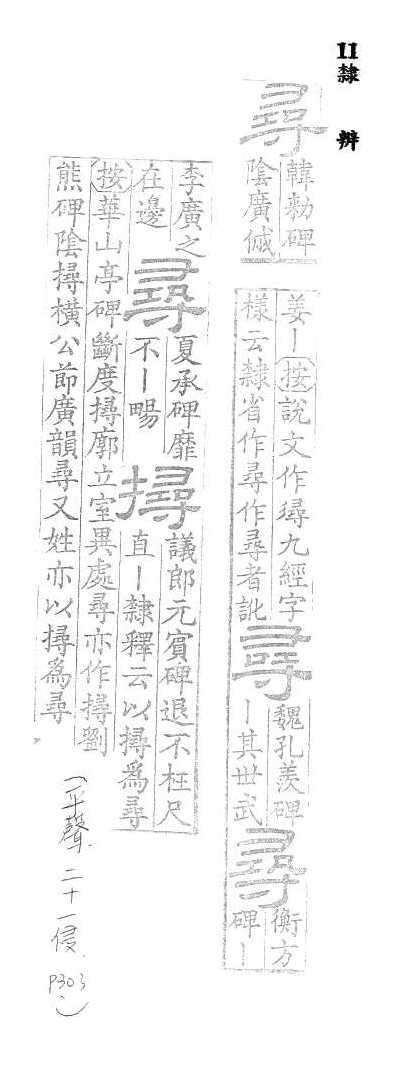 11 隸 辨
尋
韓勑碑
陰廣傶
姜丨按說文作㝷九經字
樣云隸省作尋作尋者訛
尋
魏孔羨碑
丨其世武
尋
衡方
碑丨
李廣之
在邊
尋
夏承碑靡
不丨畼
撏
議郎元賓碑退不枉尺
直丨隸釋云以撏爲尋
按華山亭碑斷度撏廓立室異處尋亦作撏劉
熊碑陰撏橫公節廣韻尋又姓亦以撏爲尋
(平聲 二十一侵 P303)